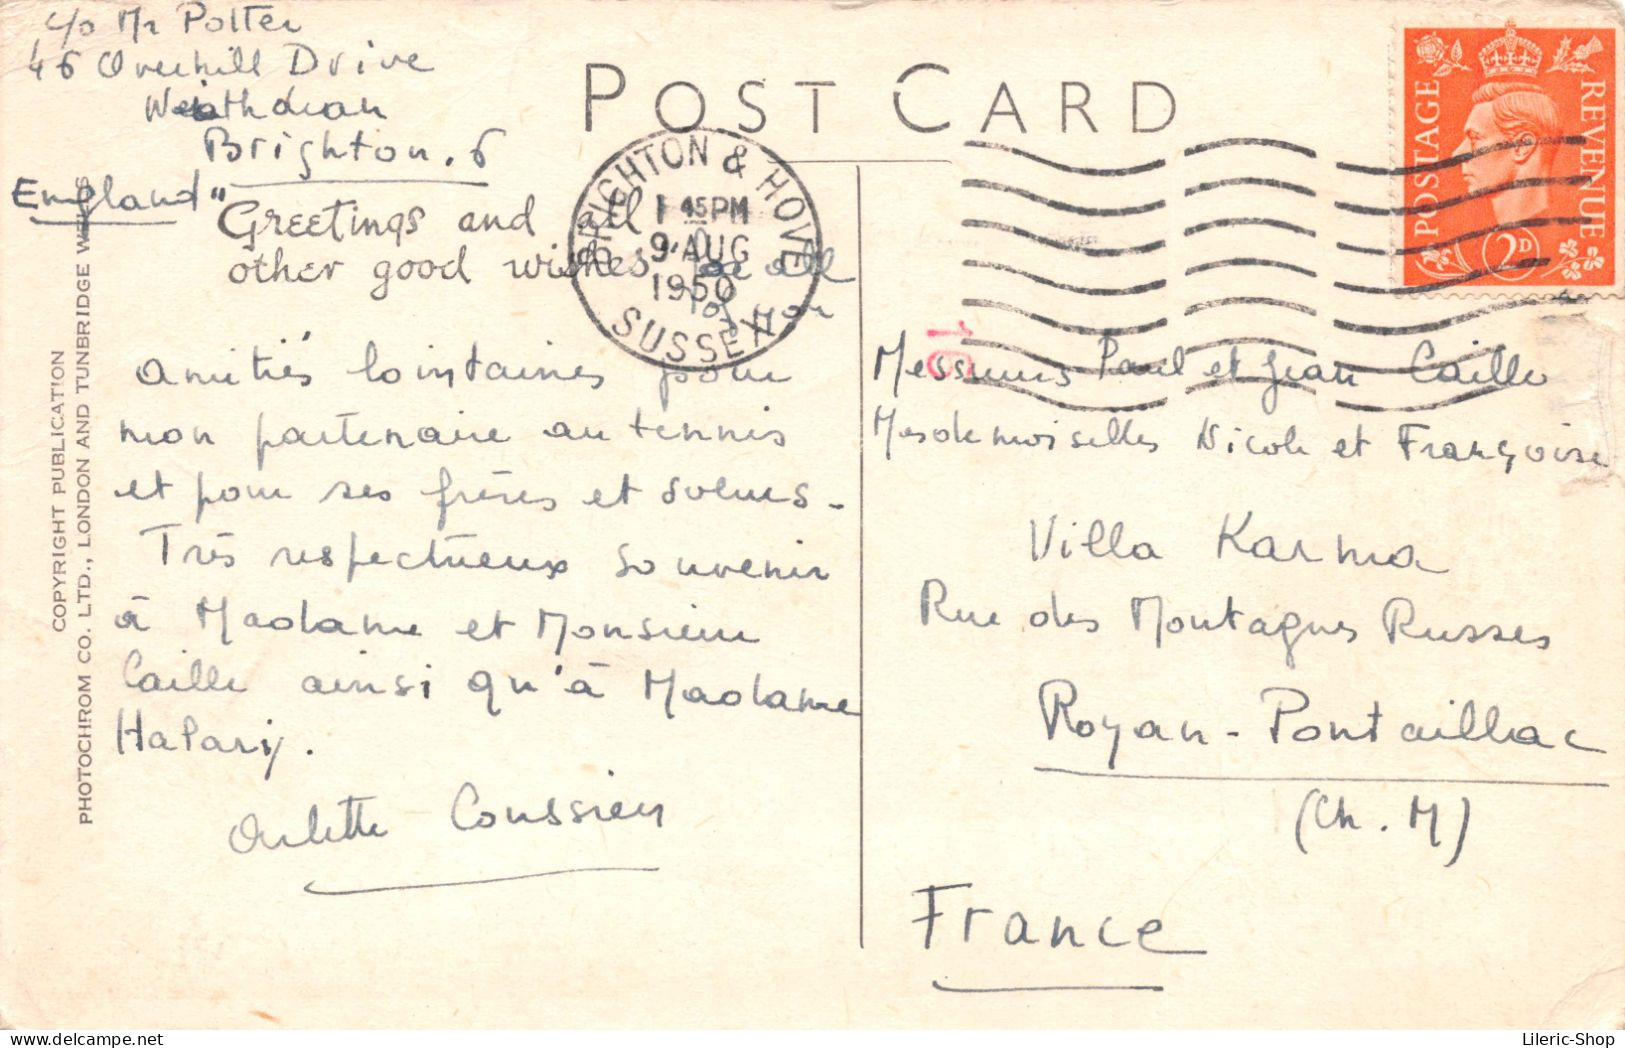 c/o Mr Potter
46 Overhill Drive
Brighton. 6
England
POST CARD
BRIGHTON & HOVE
1 45 PM
9 AUG
1950
SUSSEX
POSTAGE REVENUE
2D
"Greetings and all
other good wishes for all
of you
Amitiés lointaines pour
mon partenaire au tennis
et pour ses frères et soeurs.
Très respectueux souvenir
à Madame et Monsieur
Caille ainsi qu'à Madame
Arlette
Messieurs Paul et Jean Caille
Mesdemoiselles Nicole et Françoise
Villa Karma
Rue des Montagnes Russes
Royan-Pontaillac
(Ch. M)
France
COPYRIGHT PUBLICATION
PHOTOCHROM CO. LTD., LONDON AND TUNBRIDGE WELLS
Lileric-Shop